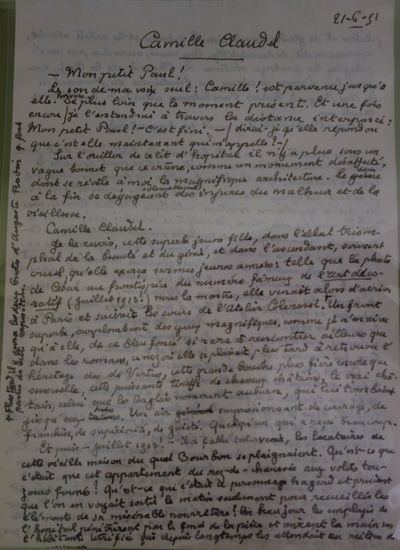 21-6-51
Camille Claudel
— Mon petit Paul !
Le son de ma voix seul : Camille ! est parvenu jusqu'à
elle. De plus loin que le moment présent. Et une fois
encore je l'entendis à travers la distance interposée :
Mon petit Paul ! — C'est fini. — dirai-je qu'elle répond ou
que c'est elle maintenant qui m'appelle ? —
Sur l'oreiller de ce lit d'hôpital il n'y a plus sous un
vague bonnet que ce crâne, comme un monument désaffecté,
dont se révèle à moi la magnifique architecture. Le génie
à la fin se dégageant des injures du malheur et de la
vieillesse.
Camille Claudel.
Je la revois, cette superbe jeune fille, dans l'éclat triom-
phal de la beauté et du génie, et dans l'ascendant, souvent
cruel, qu'elle exerça sur mes jeunes années : telle que la photo
de César au frontispice du numéro fameux de l'art déco-
ratif (juillet 1913) nous la montre, elle venait alors d'arriver
à Paris et suivait les cours de l'Atelier Colarossi. Un front
superbe, surplombant des yeux magnifiques,
de ce bleu foncé si rare à rencontrer ailleurs que
dans les romans, ce nez où elle se plaisait plus tard à retrouver l'
héritage des Vertus, cette grande bouche plus fière encore que
sensuelle, cette puissante touffe de cheveux châtains, le vrai châ-
tain, celui que les Anglais nomment auburn, qui lui tombait
jusqu'aux reins. Un air impressionnant de courage, de
franchise, de supériorité, de gaîté. Quelqu'un qui a reçu beaucoup.
Et puis — juillet 1913 ! les locataires de
cette vieille maison du quai Bourbon se plaignaient. Qu'est-ce que
c'était que cet appartement du rez-de-chaussée aux volets tou-
jours fermés ? Qu'est-ce que c'était que ce personnage hagard et prudent
que l'on en voyait sortir le matin seulement pour recueillir les
éléments de sa misérable nourriture ? Un beau jour les employés de
l'hôpital pénétrèrent par le fond de la pièce et mirent la main sur
l'habitante terrifiée qui depuis longtemps les attendait au milieu de